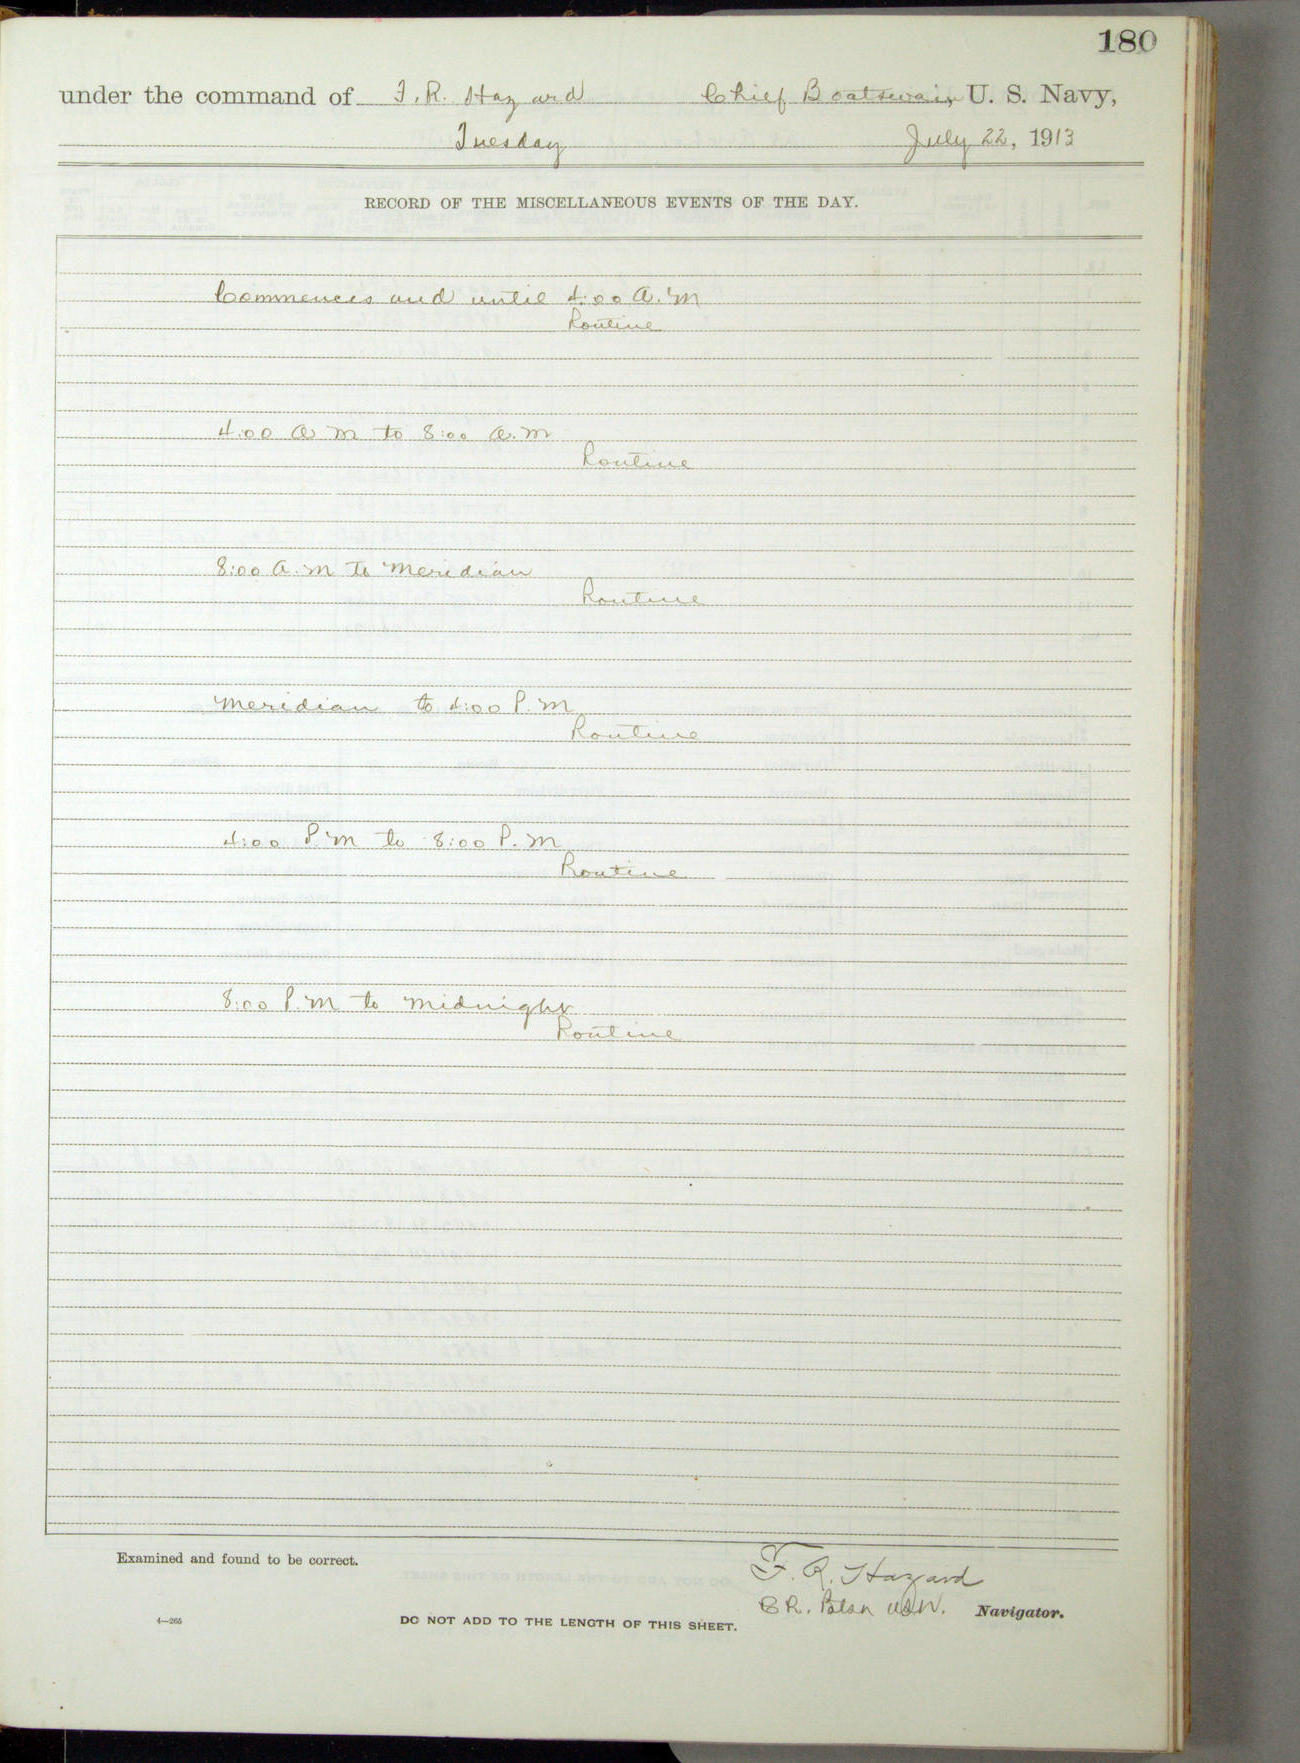 180
under the command of F. R. Hazard Chief Boatswain, U. S. Navy,
Tuesday July 22, 1913
RECORD OF THE MISCELLANEOUS EVENTS OF THE DAY.
Commences and until 4:00 A.M
Routine
4:00 A M to 8:00 A.M
Routine
8:00 A.M to Meridian
Routine
Meridian to 4:00 P.M
Routine
4:00 P.M to 8:00 P.M
Routine
8:00 P.M to Midnight
Routine
Examined and found to be correct.
F. R. Hazard
Navigator.
4—265
DO NOT ADD TO THE LENGTH OF THIS SHEET.